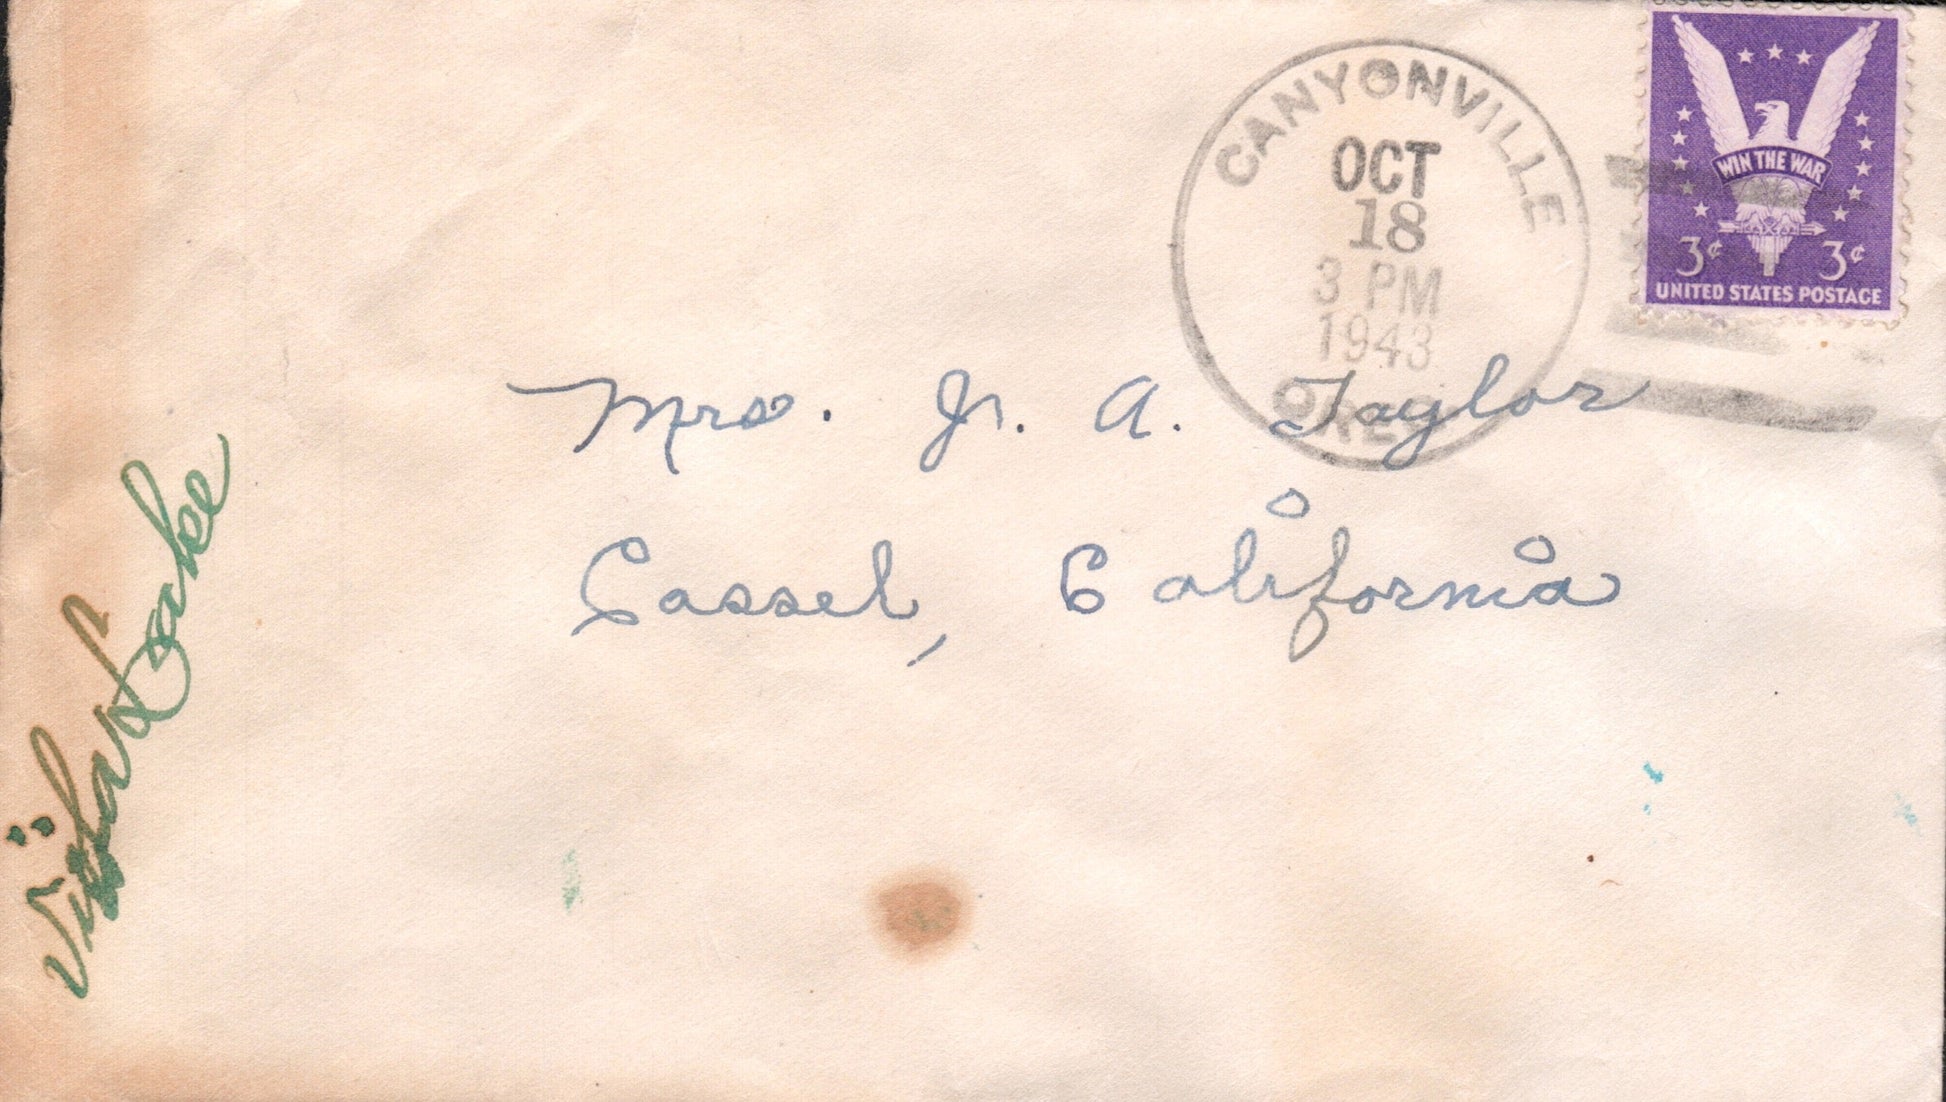 CANYONVILLE
OCT
18
3 PM
1943
OREG
WIN THE WAR
3¢ 3¢
UNITED STATES POSTAGE
Mrs. Jr. A. Taylor
Cassel, California